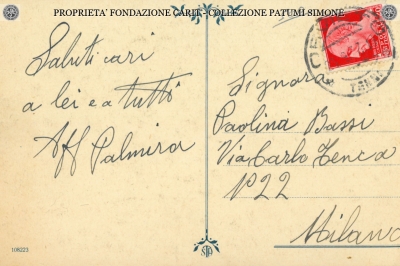 PROPRIETA' FONDAZIONE CARIT - COLLEZIONE PATUMI SIMONE
Saluti cari
a lei e a tutti
Aff Palmira
Signora
Paolina Bassi
Via Carlo Tenca
N° 22
Milano
106223
STA